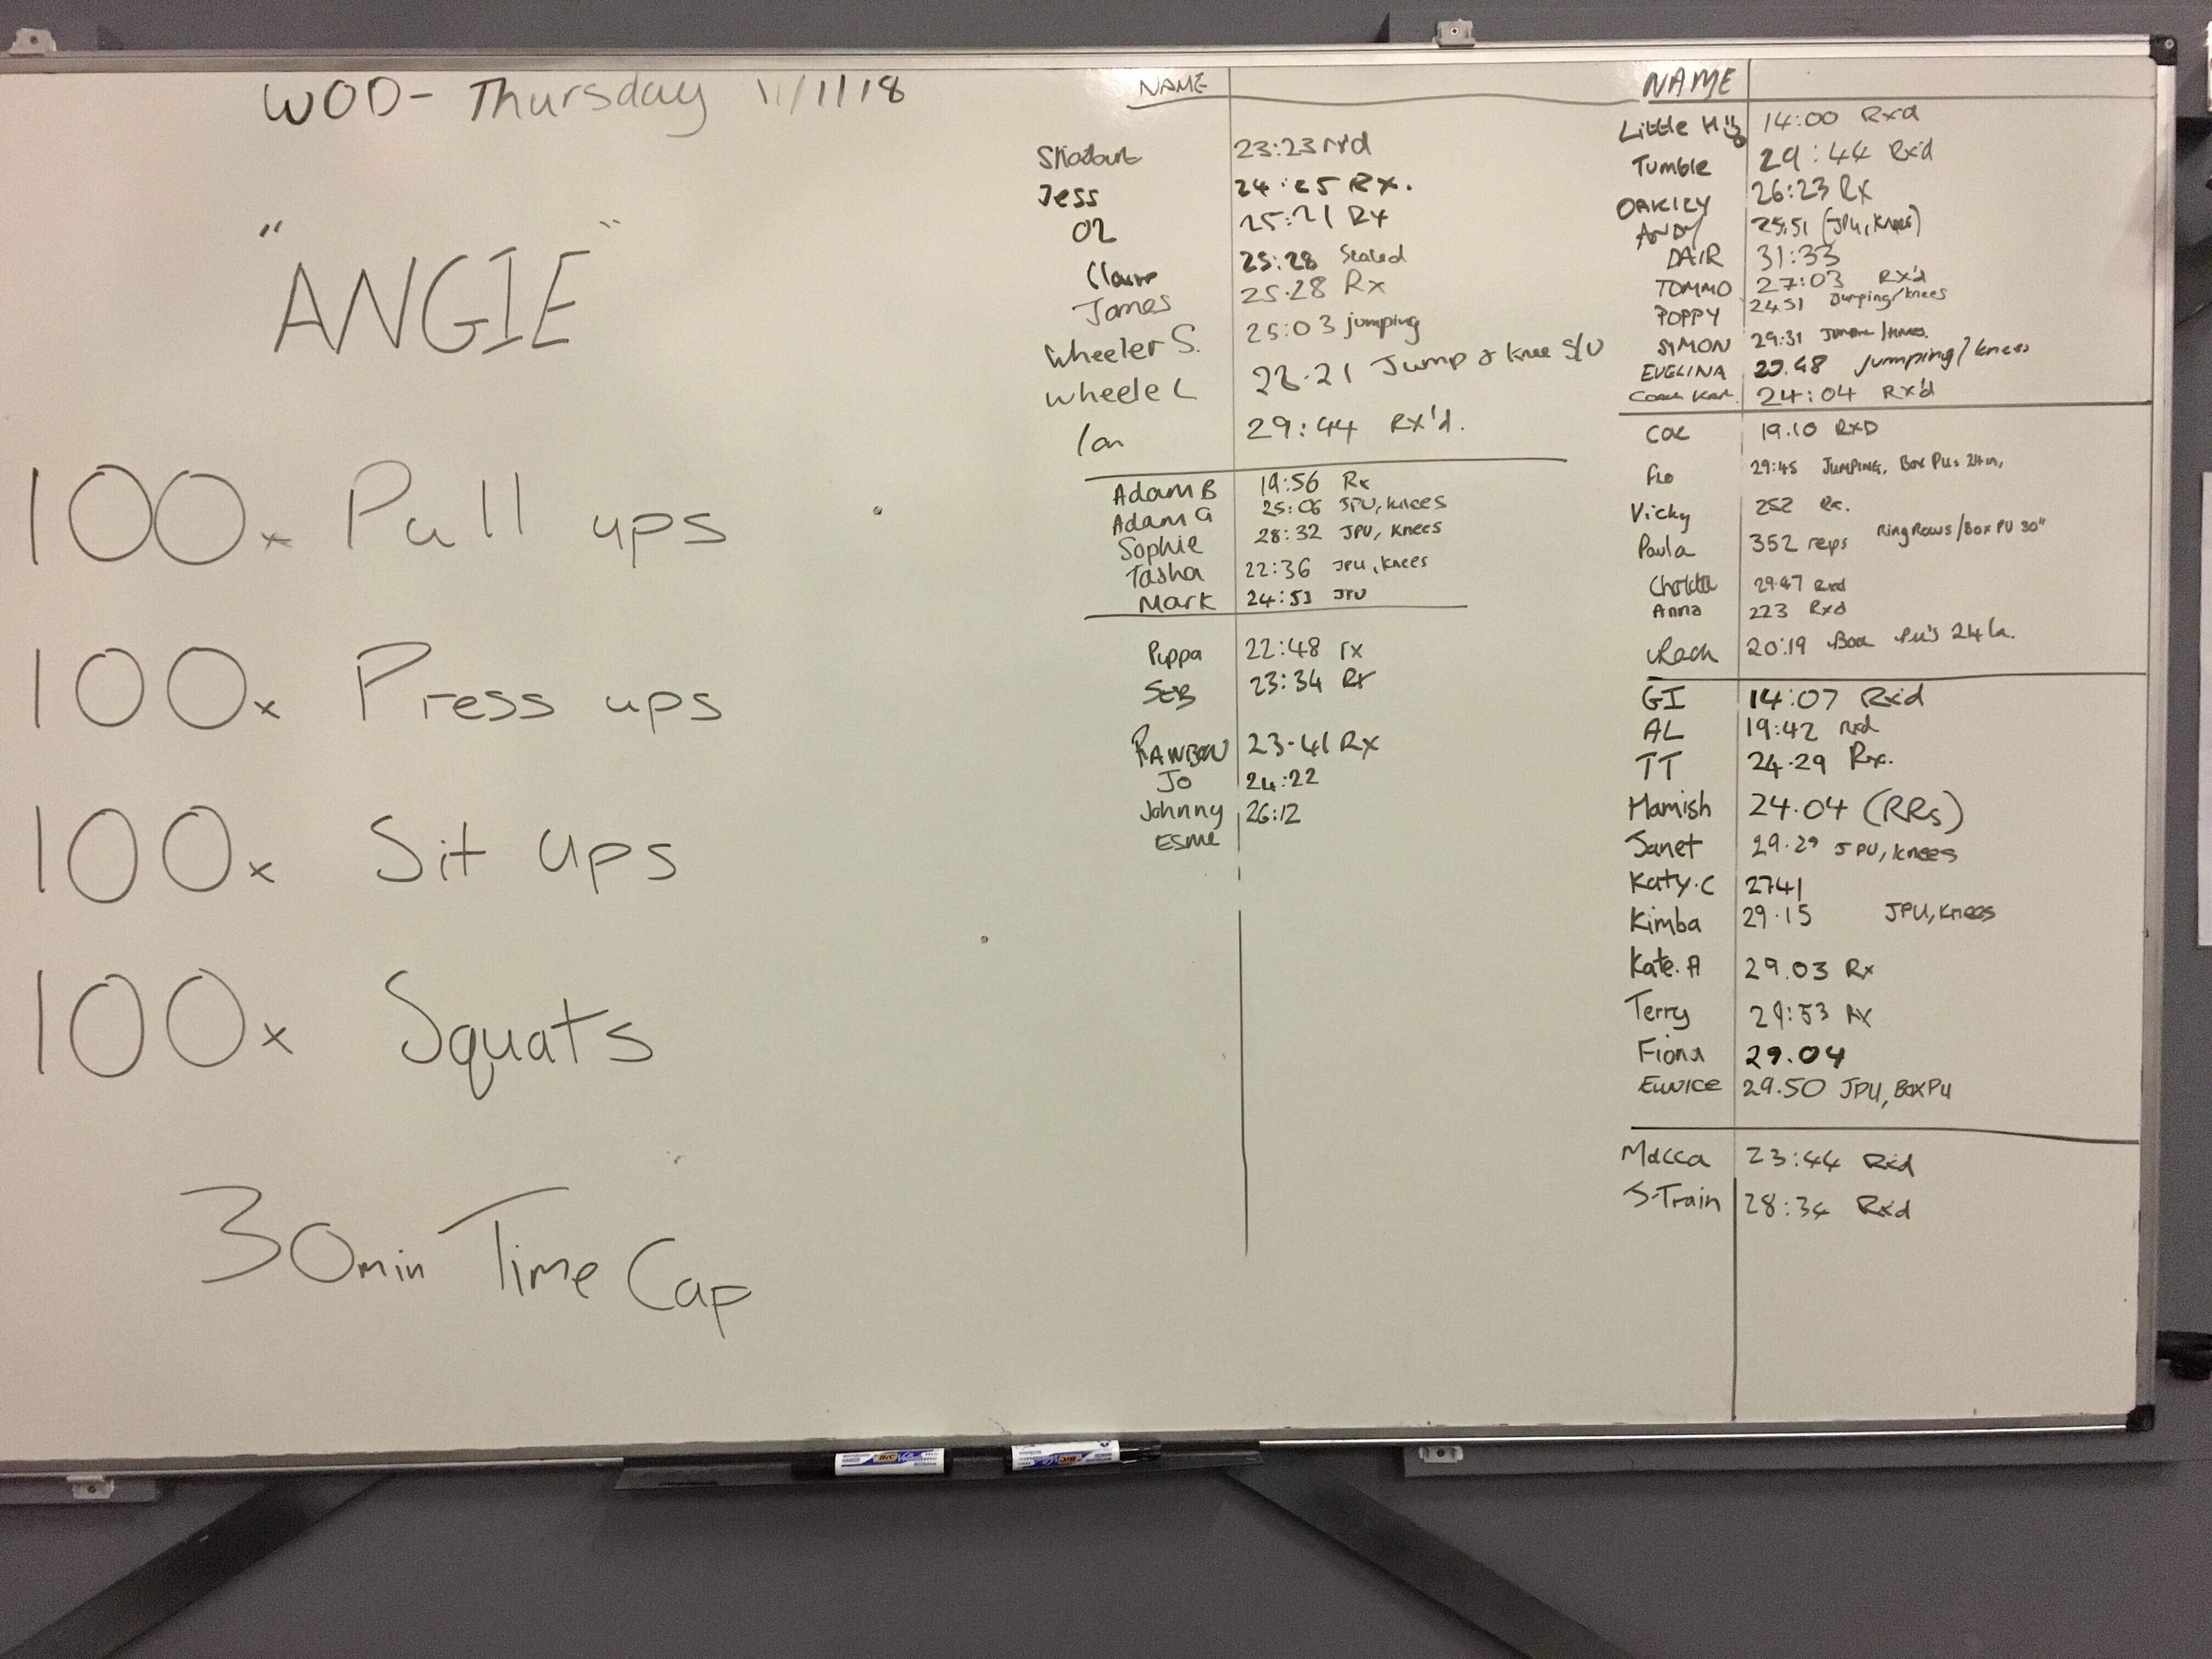 WOD - Thursday 11/1/18
"ANGIE"
100x Pull ups
100x Press ups
100x Sit ups
100x Squats
30min Time Cap
NAME
23:23 rxd
Jess 24:25 Rx.
Oz 25:21 Rx
Claire 25:28 Scaled
James 25.28 Rx
Wheeler S. 25:03 jumping
Wheele L 28.21 Jump & knee S/U
Ian 29:44 Rx'd.
Adam B 19:56 Rx
Adam G 25:06 JPU, knees
Sophie 28:32 JPU, Knees
Tasha 22:36 JPU, knees
Mark 24:53 JPU
Pippa 22:48 rx
SEB 23:34 Rx
23.41 Rx
Jo 24:22
Johnny 26:12
Esme
NAME
Little 14:00 Rxd
Tumble 29:44 Rx'd
OAKLEY 26:23 Rx
ANDY 25:51 (JPU, Knees)
DAIR 31:33
TOMMO 27:03 RX'd
POPPY 2451 Jumping/knees
SIMON 29:31
EVELINA Jumping/knees
Coach 24:04 RX'd
19.10 RXD
Flo 29:45 JUMPING, Box PUs 24in,
Vicky 252 Rx.
Paula 352 reps Ring Rows/Box PU 30"
29.47 Rxd
Anna 223 Rxd
Rach 20:19 Box PU's 24in.
GI 14:07 Rx'd
AL 19:42 rxd
TT 24.29 Rx.
Hamish 24.04 (RRs)
Janet 29.29 JPU, knees
Katy.C 2741
Kimba 29.15 JPU, knees
Kate.A 29.03 Rx
Terry 29:53 RX
Fiona 29.04
EUNICE 29.50 JPU, BOX PU
Macca 23:44 Rxd
S-Train 28:34 Rxd